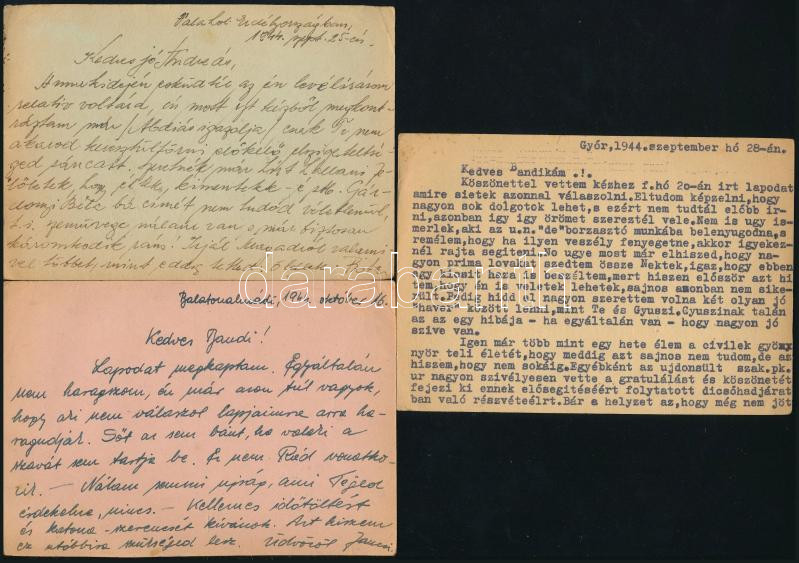 1944. szept. 25-én.
Kedves jó Andreás,
az én levélírásom
relatív voltárd, és most egy kézből megkont-
ráztam már / csak Te nem
akarod keresztültörni előkelő elszigeteltsé-
ged sáncait. Szeretnék már
hogy, éltek, kimentetek-e, stb. Gár-
donyi Béla bá címét nem tudod véletlenül,
t. i. szemüvege nálam van s már biztosan
káromkodik rám! Írjál Magadról valami-
vel többet, mint eddig
Balatonalmádi, 1944. október 16.
Kedves Bandi!
Lapodat megkaptam. Egyáltalán
nem haragszom, én már azon túl vagyok,
hogy aki nem válaszol lapjaimra arra ha-
ragudjak. Sőt az sem bánt, ha valaki a
szavát sem tartja be. Ez nem Rád vonatko-
zik. — Nálam semmi ujság, ami Téged
érdekelne, nincs. — Kellemes időtöltést
és katona-szerencsét kívánok. Azt hiszem
ez utóbbira szükséged lesz. Üdvözöl Jancsi
Győr,1944.szeptember hó 28-án.
Kedves Bandikám .!.
Köszönettel vettem kézhez f.hó 2o-án irt lapodat
amire sietek azonnal válaszolni.Eltudom képzelni,hogy
nagyon sok dolgotok lehet,s ezért nem tudtál előbb ir-
ni,azonban igy igy örömet szereztél vele.Nem is ugy is-
merlek,aki az u.n."de"borzasztó munkába belenyugodna,s
remélem,hogy ha ilyen veszély fenyegetne,akkor igyekez-
nél rajta segiteni.No ugye most már elhiszed,hogy na-
gyon prima lovakat szedtem össze Nektek,igaz,hogy ebben
egy kicsit haza is beszéltem,mert hiszen először azt hit-
tem,hogy én is veletek lehetek,sajnos amonban nem sike-
rült.Pedig hidd el nagyon szerettem volna két olyan jó
"haver" között lenni,mint Te és Gyuszi.Gyuszinak talán
az az egy hibája - ha egyáltalán van - hogy nagyon jó
szive van.
Igen már több mint egy hete élem a civilek gyönx
nyör teli életét,hogy meddig azt sajnos nem tudom,de az
hiszem,hogy nem sokáig.Egyébként az ujdonsült szak.pk.
ur nagyon szivélyesen vette a gratulálást és köszönetét
fejezi ki ennek elősegitéséért folytatott dicsőhadjárat
ban való részvételért.Bár a helyzet az,hogy még nem jöt
darabanth